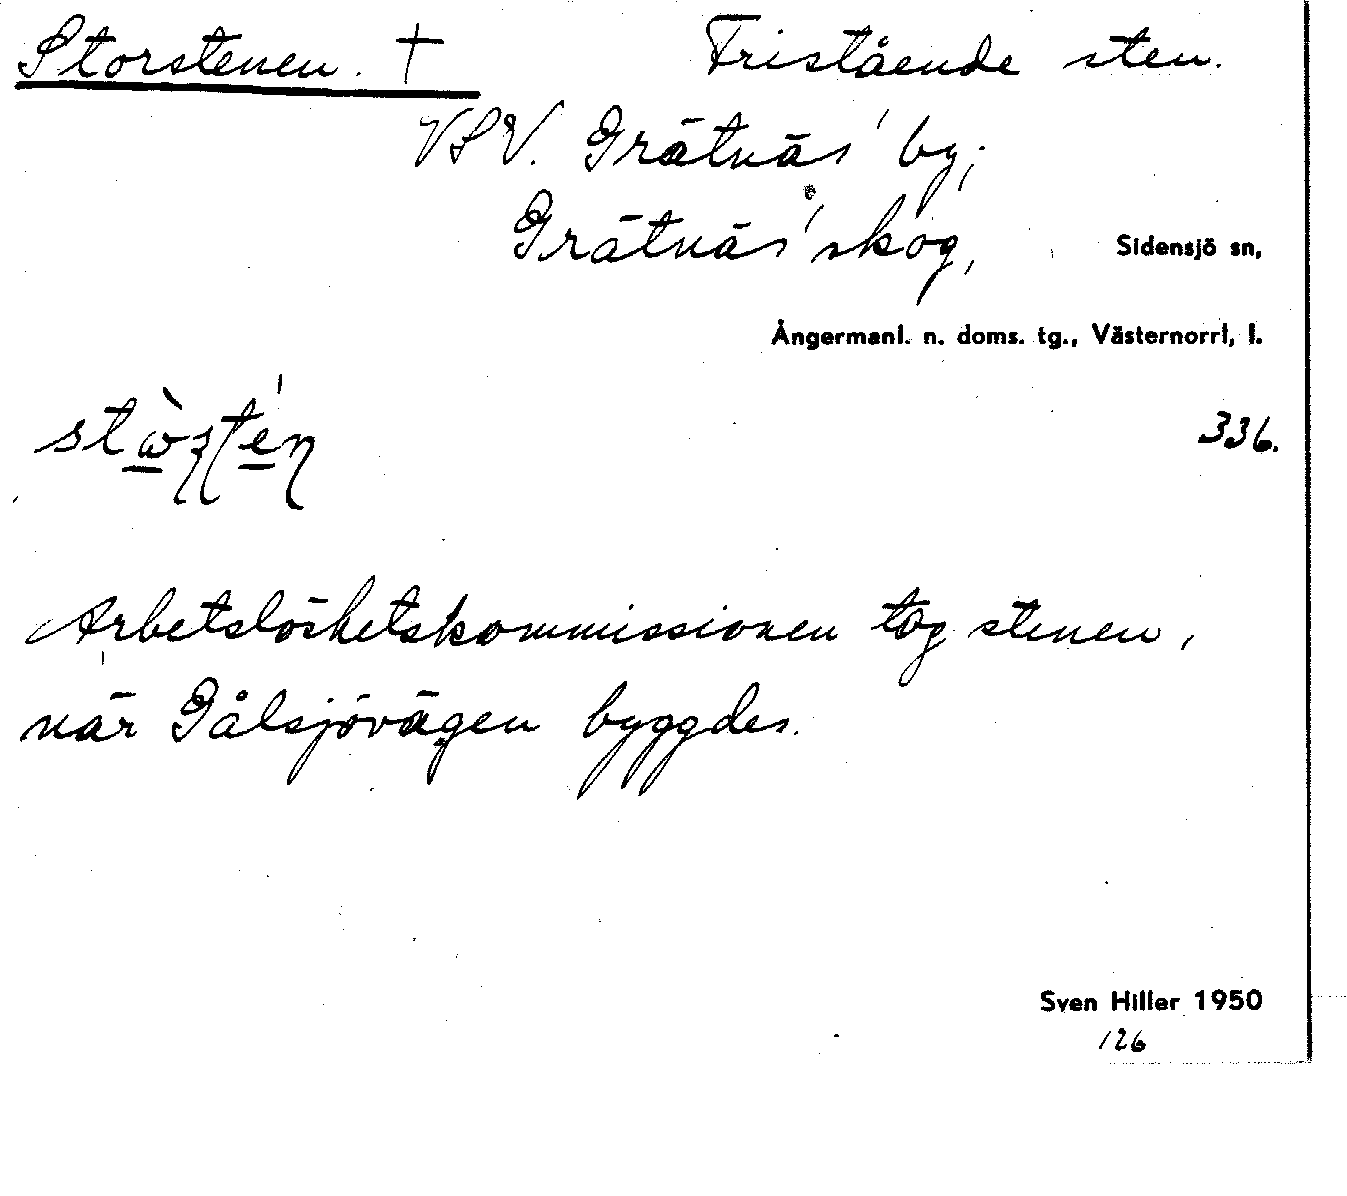 Storstenen. † Fristående sten.
VSV. Grätnäs' by;
Grätnäs' skog, Sidensjö sn,
Ångermanl. n. doms. tg., Västernorrl, l.
336.
Arbetslöshetskommissionen tog stenen,
när Gålsjövägen byggdes.
Sven Hiller 1950
126